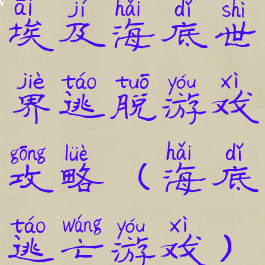 āi jí hǎi dǐ shì
埃及海底世
jiè táo tuō yóu xì
界逃脱游戏
gōng lüè hǎi dǐ
攻略（海底
táo wáng yóu xì
逃亡游戏）